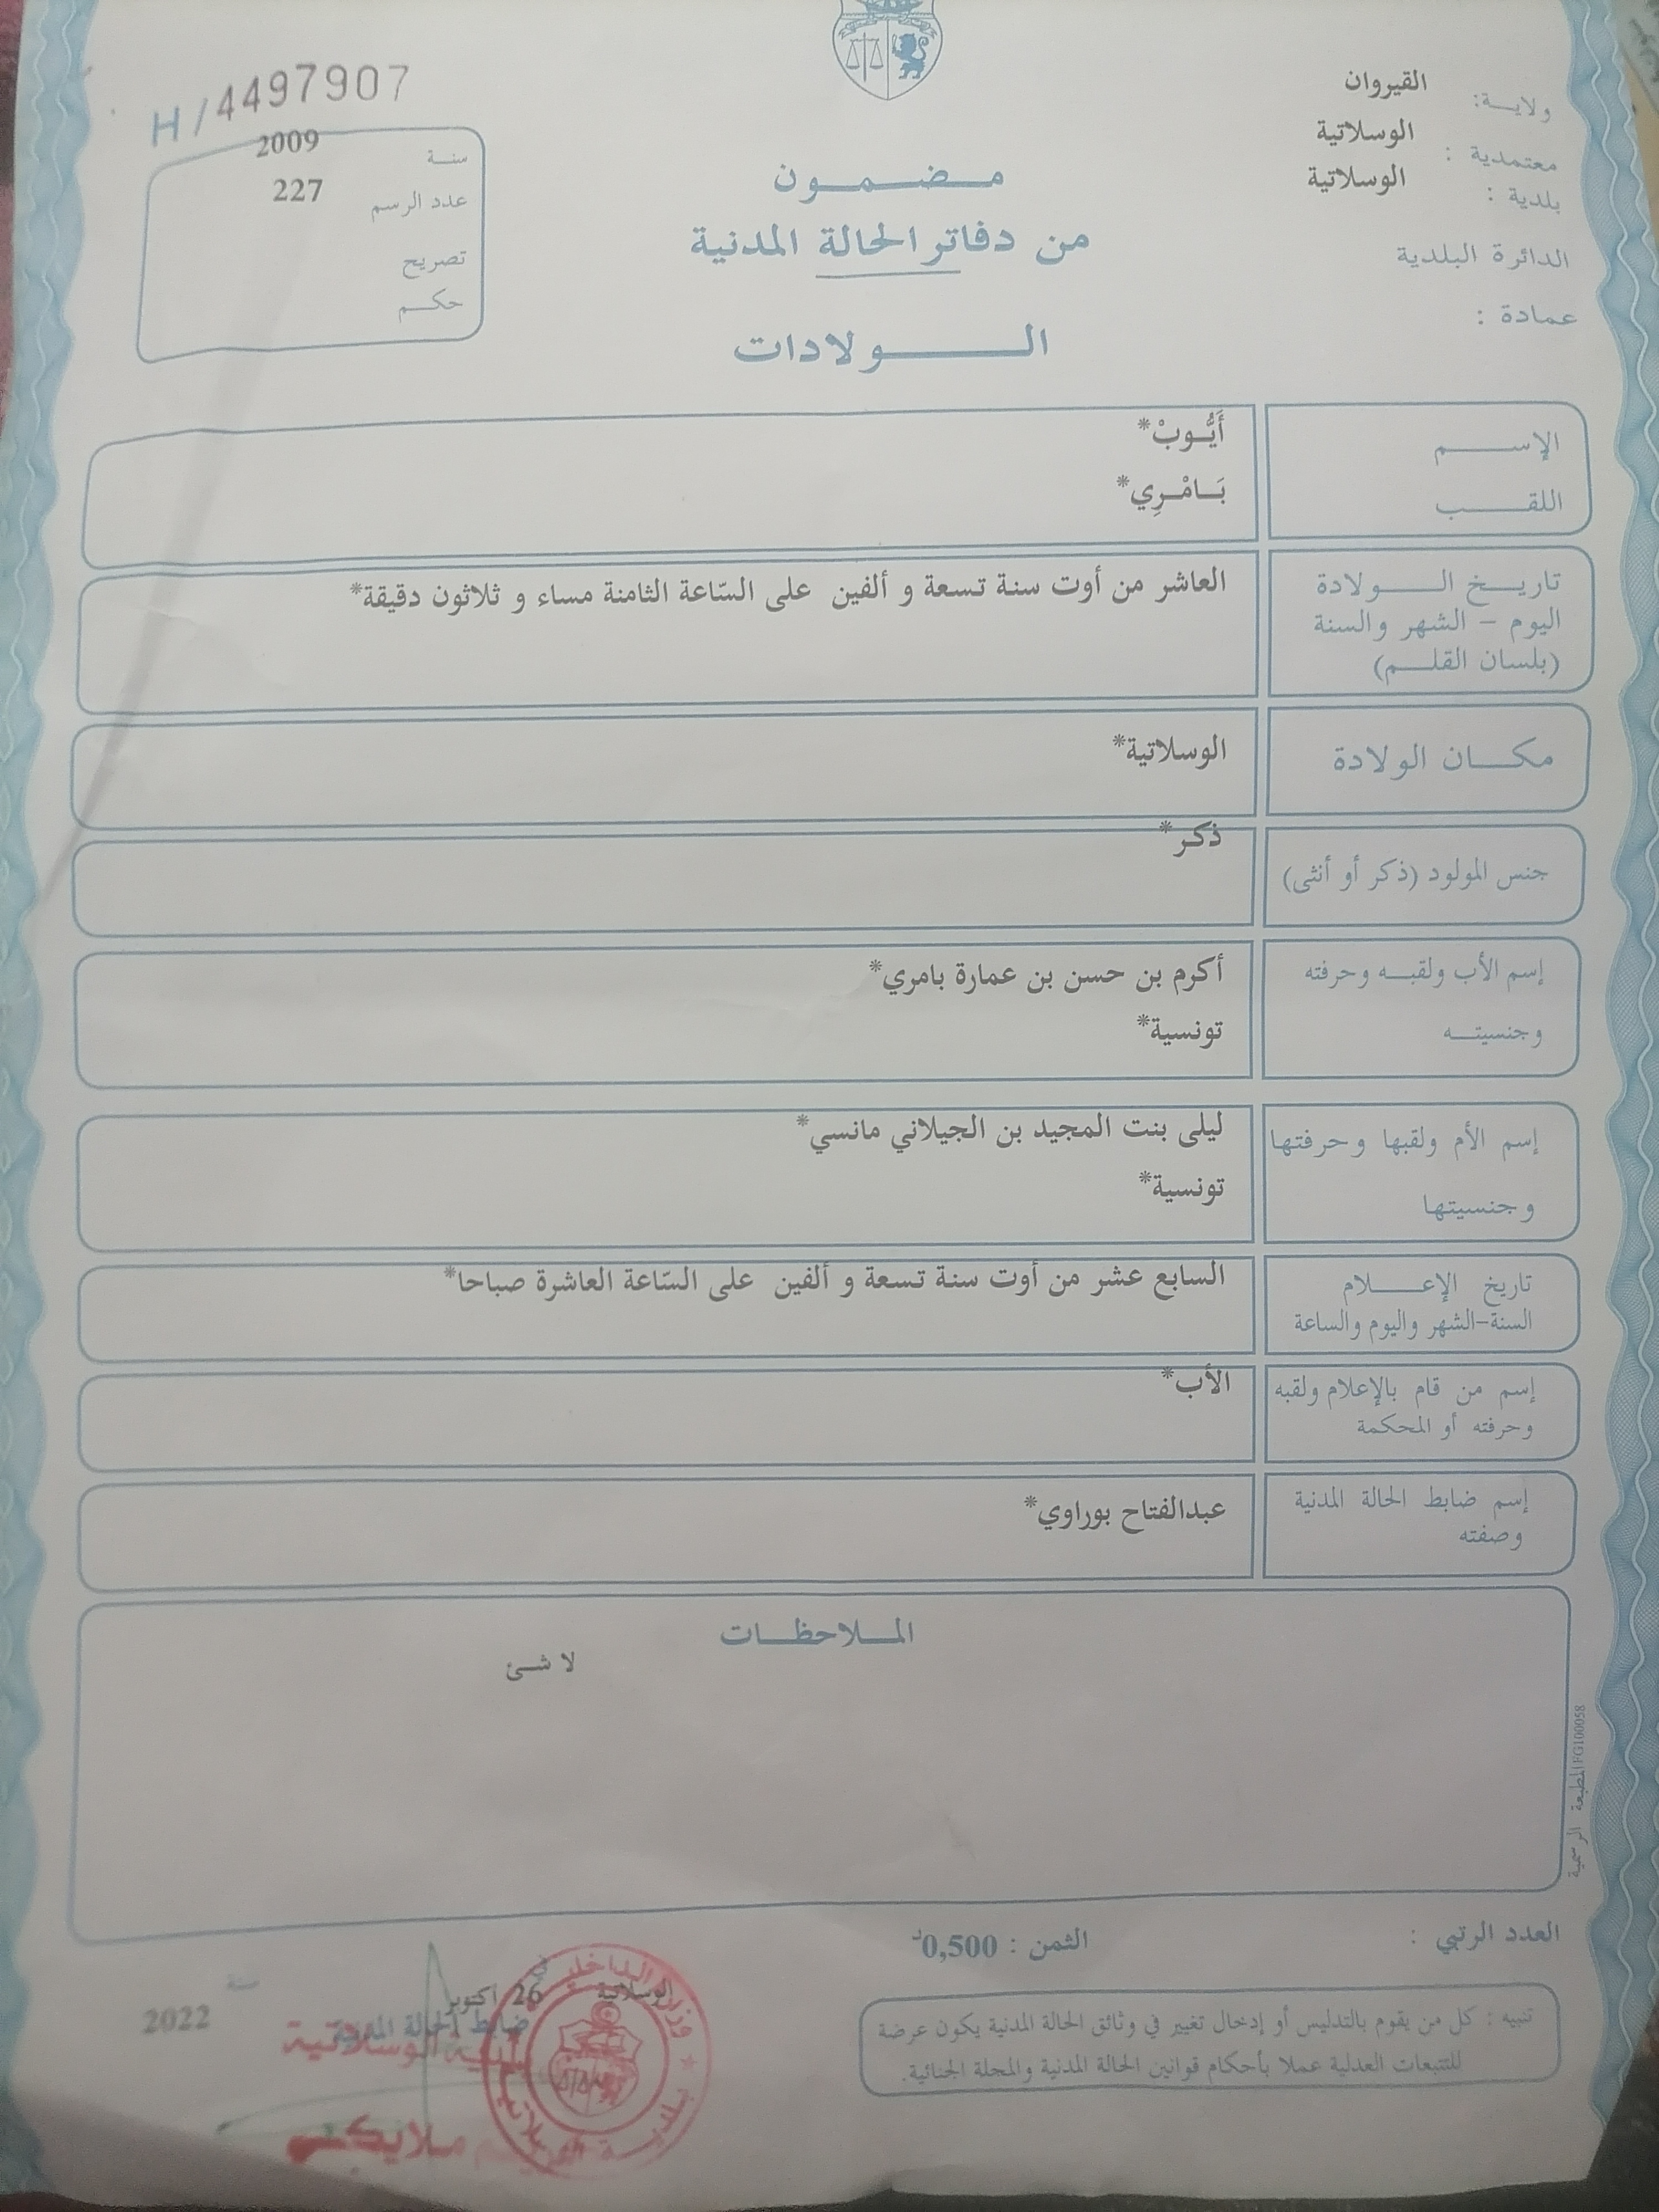 H/4497907
ولايـــة: القيروان
معتمدية : الوسلاتية
بلدية : الوسلاتية
الدائرة البلدية
عمادة :
سنـة 2009
عدد الرسم 227
تصريح
حكـم
مـضـمـون
من دفاتر الحالة المدنية
الـــولادات
الإســـم أَيُّـوبْ*
اللقـــب بَـامْـرِي*
تاريـخ الـــولادة العاشر من أوت سنة تسعة و ألفين على السّاعة الثامنة مساء و ثلاثون دقيقة*
اليوم – الشهر والسنة
(بلسان القلـم)
مكـان الولادة الوسلاتية*
جنس المولود (ذكر أو أنثى) ذكر*
إسم الأب ولقبـه وحرفته أكرم بن حسن بن عمارة بامري*
وجنسيتـه تونسية*
إسم الأم ولقبها وحرفتها ليلى بنت المجيد بن الجيلاني مانسي*
وجنسيتها تونسية*
تاريخ الإعـــلام السابع عشر من أوت سنة تسعة و ألفين على السّاعة العاشرة صباحا*
السنة-الشهر واليوم والساعة
إسم من قام بالإعلام ولقبه الأب*
وحرفته أو المحكمة
إسم ضابط الحالة المدنية عبدالفتاح بوراوي*
وصفته
المـلاحظـات
لا شئ
المطبعة الرسمية FG100058
العدد الرتبي :
الثمن : 0,500د
تنبيه : كل من يقوم بالتدليس أو إدخال تغيير في وثائق الحالة المدنية يكون عرضة
للتتبعات العدلية عملا بأحكام قوانين الحالة المدنية والمجلة الجنائية.
الوسلاتية في 26 أكتوبر سنة 2022
ضابط الحالة المدنية
الوسلاتية